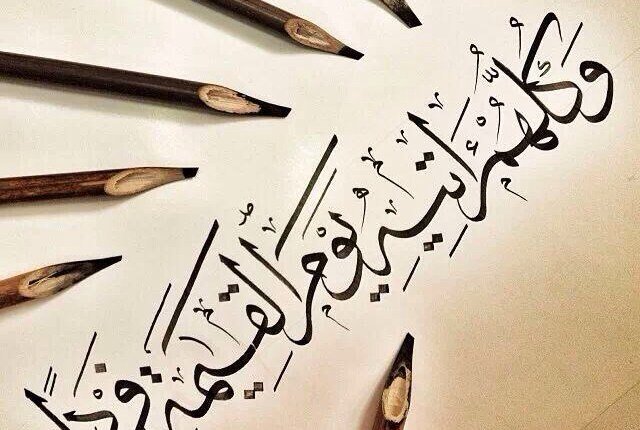 وَكُلُّهُمْ ءَاتِيهِ يَوْمَ ٱلْقِيَٰمَةِ فَرْدًا